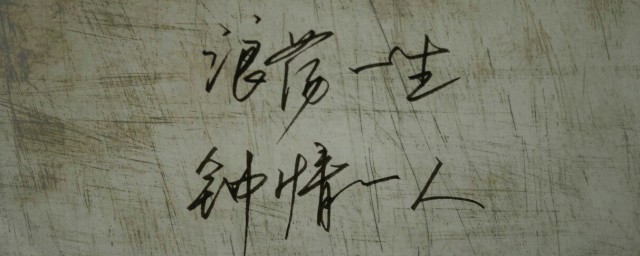 浪荡一生
钟情一人